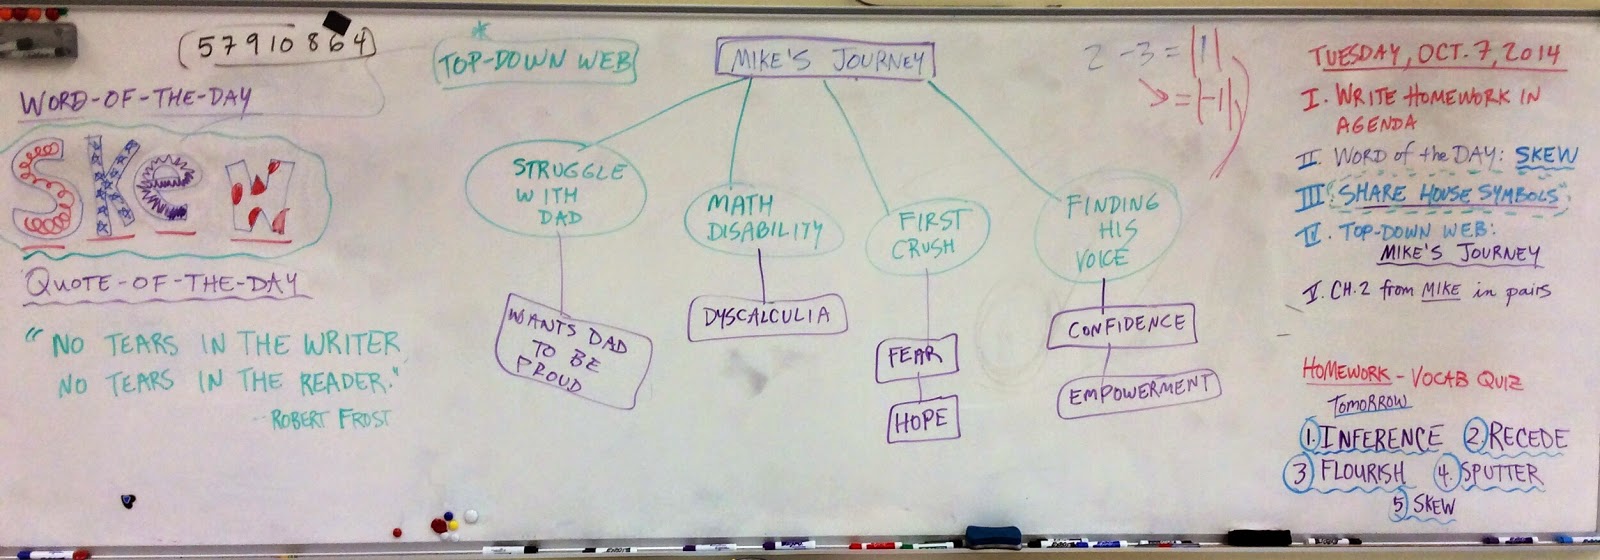 (5 7 9 10 8 6 4)
WORD-OF-THE-DAY
SKeW
QUOTE-OF-THE-DAY
"NO TEARS IN THE WRITER
NO TEARS IN THE READER."
-- ROBERT FROST
*
TOP-DOWN WEB
MIKE'S JOURNEY
STRUGGLE
WITH
DAD
WANTS DAD
TO BE
PROUD
MATH
DISABILITY
DYSCALCULIA
FIRST
CRUSH
FEAR
HOPE
FINDING
HIS
VOICE
CONFIDENCE
EMPOWERMENT
2 - 3 = |1|
= |-1|
TUESDAY, OCT. 7, 2014
I. WRITE HOMEWORK IN
AGENDA
II. WORD of the DAY: SKEW
III. "SHARE HOUSE SYMBOLS"
IV. TOP-DOWN WEB:
MIKE'S JOURNEY
V. CH. 2 from MIKE in pairs
HOMEWORK - VOCAB QUIZ
TOMORROW
1. INFERENCE 2. RECEDE
3 FLOURISH 4. SPUTTER
5 SKEW